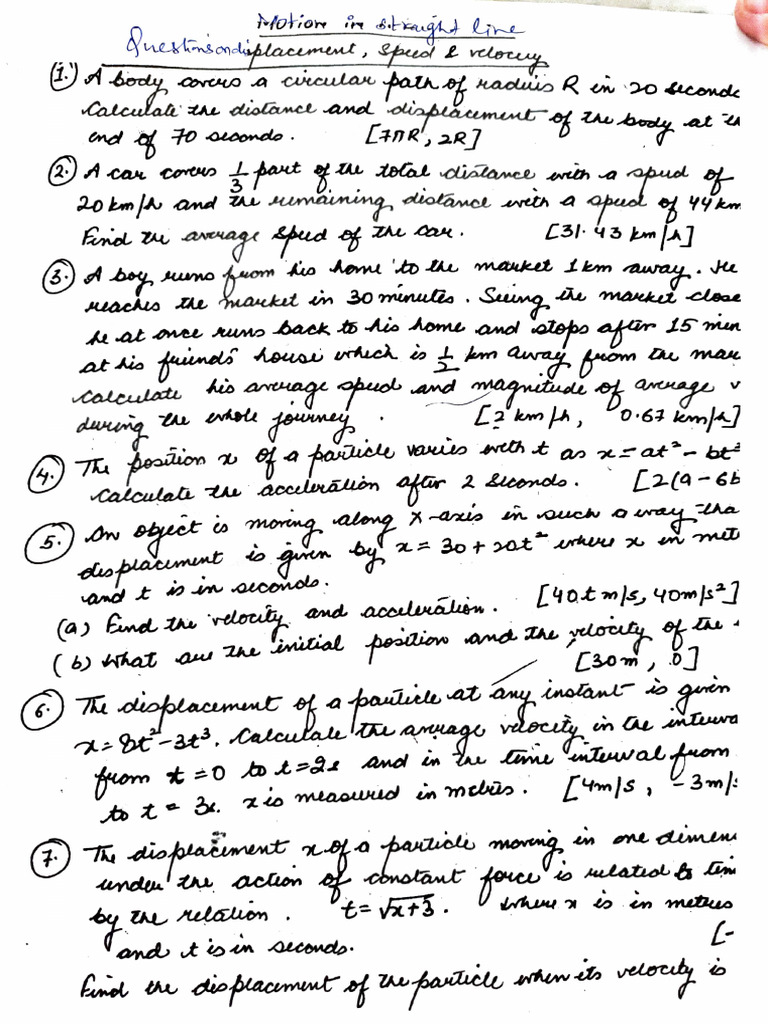 Motion in straight line
Questions on displacement, speed & velocity
1. A body covers a circular path of radius R in 20 seconds
Calculate the distance and displacement of the body at th
end of 70 seconds. [7πR, 2R]
2. A car covers 1/3 part of the total distance with a speed of
20 km/h and the remaining distance with a speed of 44 km
Find the average speed of the car. [31.43 km/h]
3. A boy runs from his home to the market 1 km away. He
reaches the market in 30 minutes. Seeing the market close
he at once runs back to his home and stops after 15 min
at his friends' house which is 1/2 km away from the mar
Calculate his average speed and magnitude of average v
during the whole journey. [2 km/h, 0.67 km/h]
4. The position x of a particle varies with t as x = at² - bt³
Calculate the acceleration after 2 seconds. [2(a - 6b
5. An object is moving along x-axis in such a way tha
displacement is given by x = 30 + 20t² where x in met
and t is in seconds.
(a) Find the velocity and acceleration. [40t m/s, 40m/s²]
(b) What are the initial position and the velocity of the
[30m, 0]
6. The displacement of a particle at any instant is given
x = 8t² - 3t³. Calculate the average velocity in the interva
from t = 0 to t = 2s and in the time interval from
to t = 3s. x is measured in metres. [4m/s, -3m/s
7. The displacement x of a particle moving in one dimen
under the action of constant force is related to tim
by the relation. t = √x+3. where x is in metres
and t is in seconds. [-
Find the displacement of the particle when its velocity is